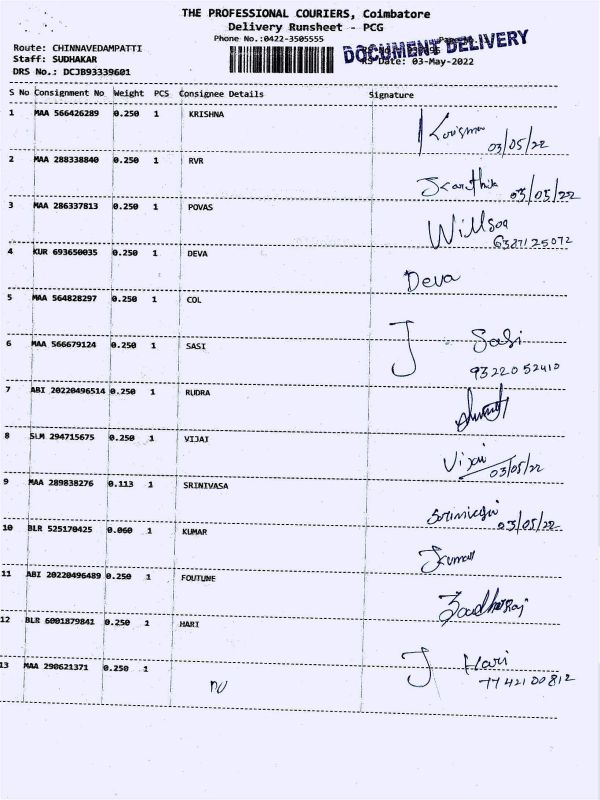 THE PROFESSIONAL COURIERS, Coimbatore
Delivery Runsheet - PCG
Phone No.:0422-3505555
DOCUMENT DELIVERY
Route: CHINNAVEDAMPATTI
Staff: SUDHAKAR
Date: 03-May-2022
DRS No.: DCJB93339601
S No Consignment No Weight PCS Consignee Details Signature
1 MAA 566426289 0.250 1 KRISHNA
03/05/22
2 MAA 288338840 0.250 1 RVR
03/05/22
3 MAA 286337813 0.250 1 POVAS Willson
6387125072
4 KUR 693650035 0.250 1 DEVA Deva
5 MAA 564828297 0.250 1 COL
6 MAA 566679124 0.250 1 SASI Sasi
9322052410
7 ABI 20220496514 0.250 1 RUDRA
8 SLM 294715675 0.250 1 VIJAI Vijai
03/05/22
9 MAA 289838276 0.113 1 SRINIVASA
03/05/22
10 BLR 525170425 0.060 1 KUMAR Kumar
11 ABI 20220496489 0.250 1 FOUTUNE
12 BLR 6001879841 0.250 1 HARI Hari
7742100812
13 MAA 290621371 0.250 1